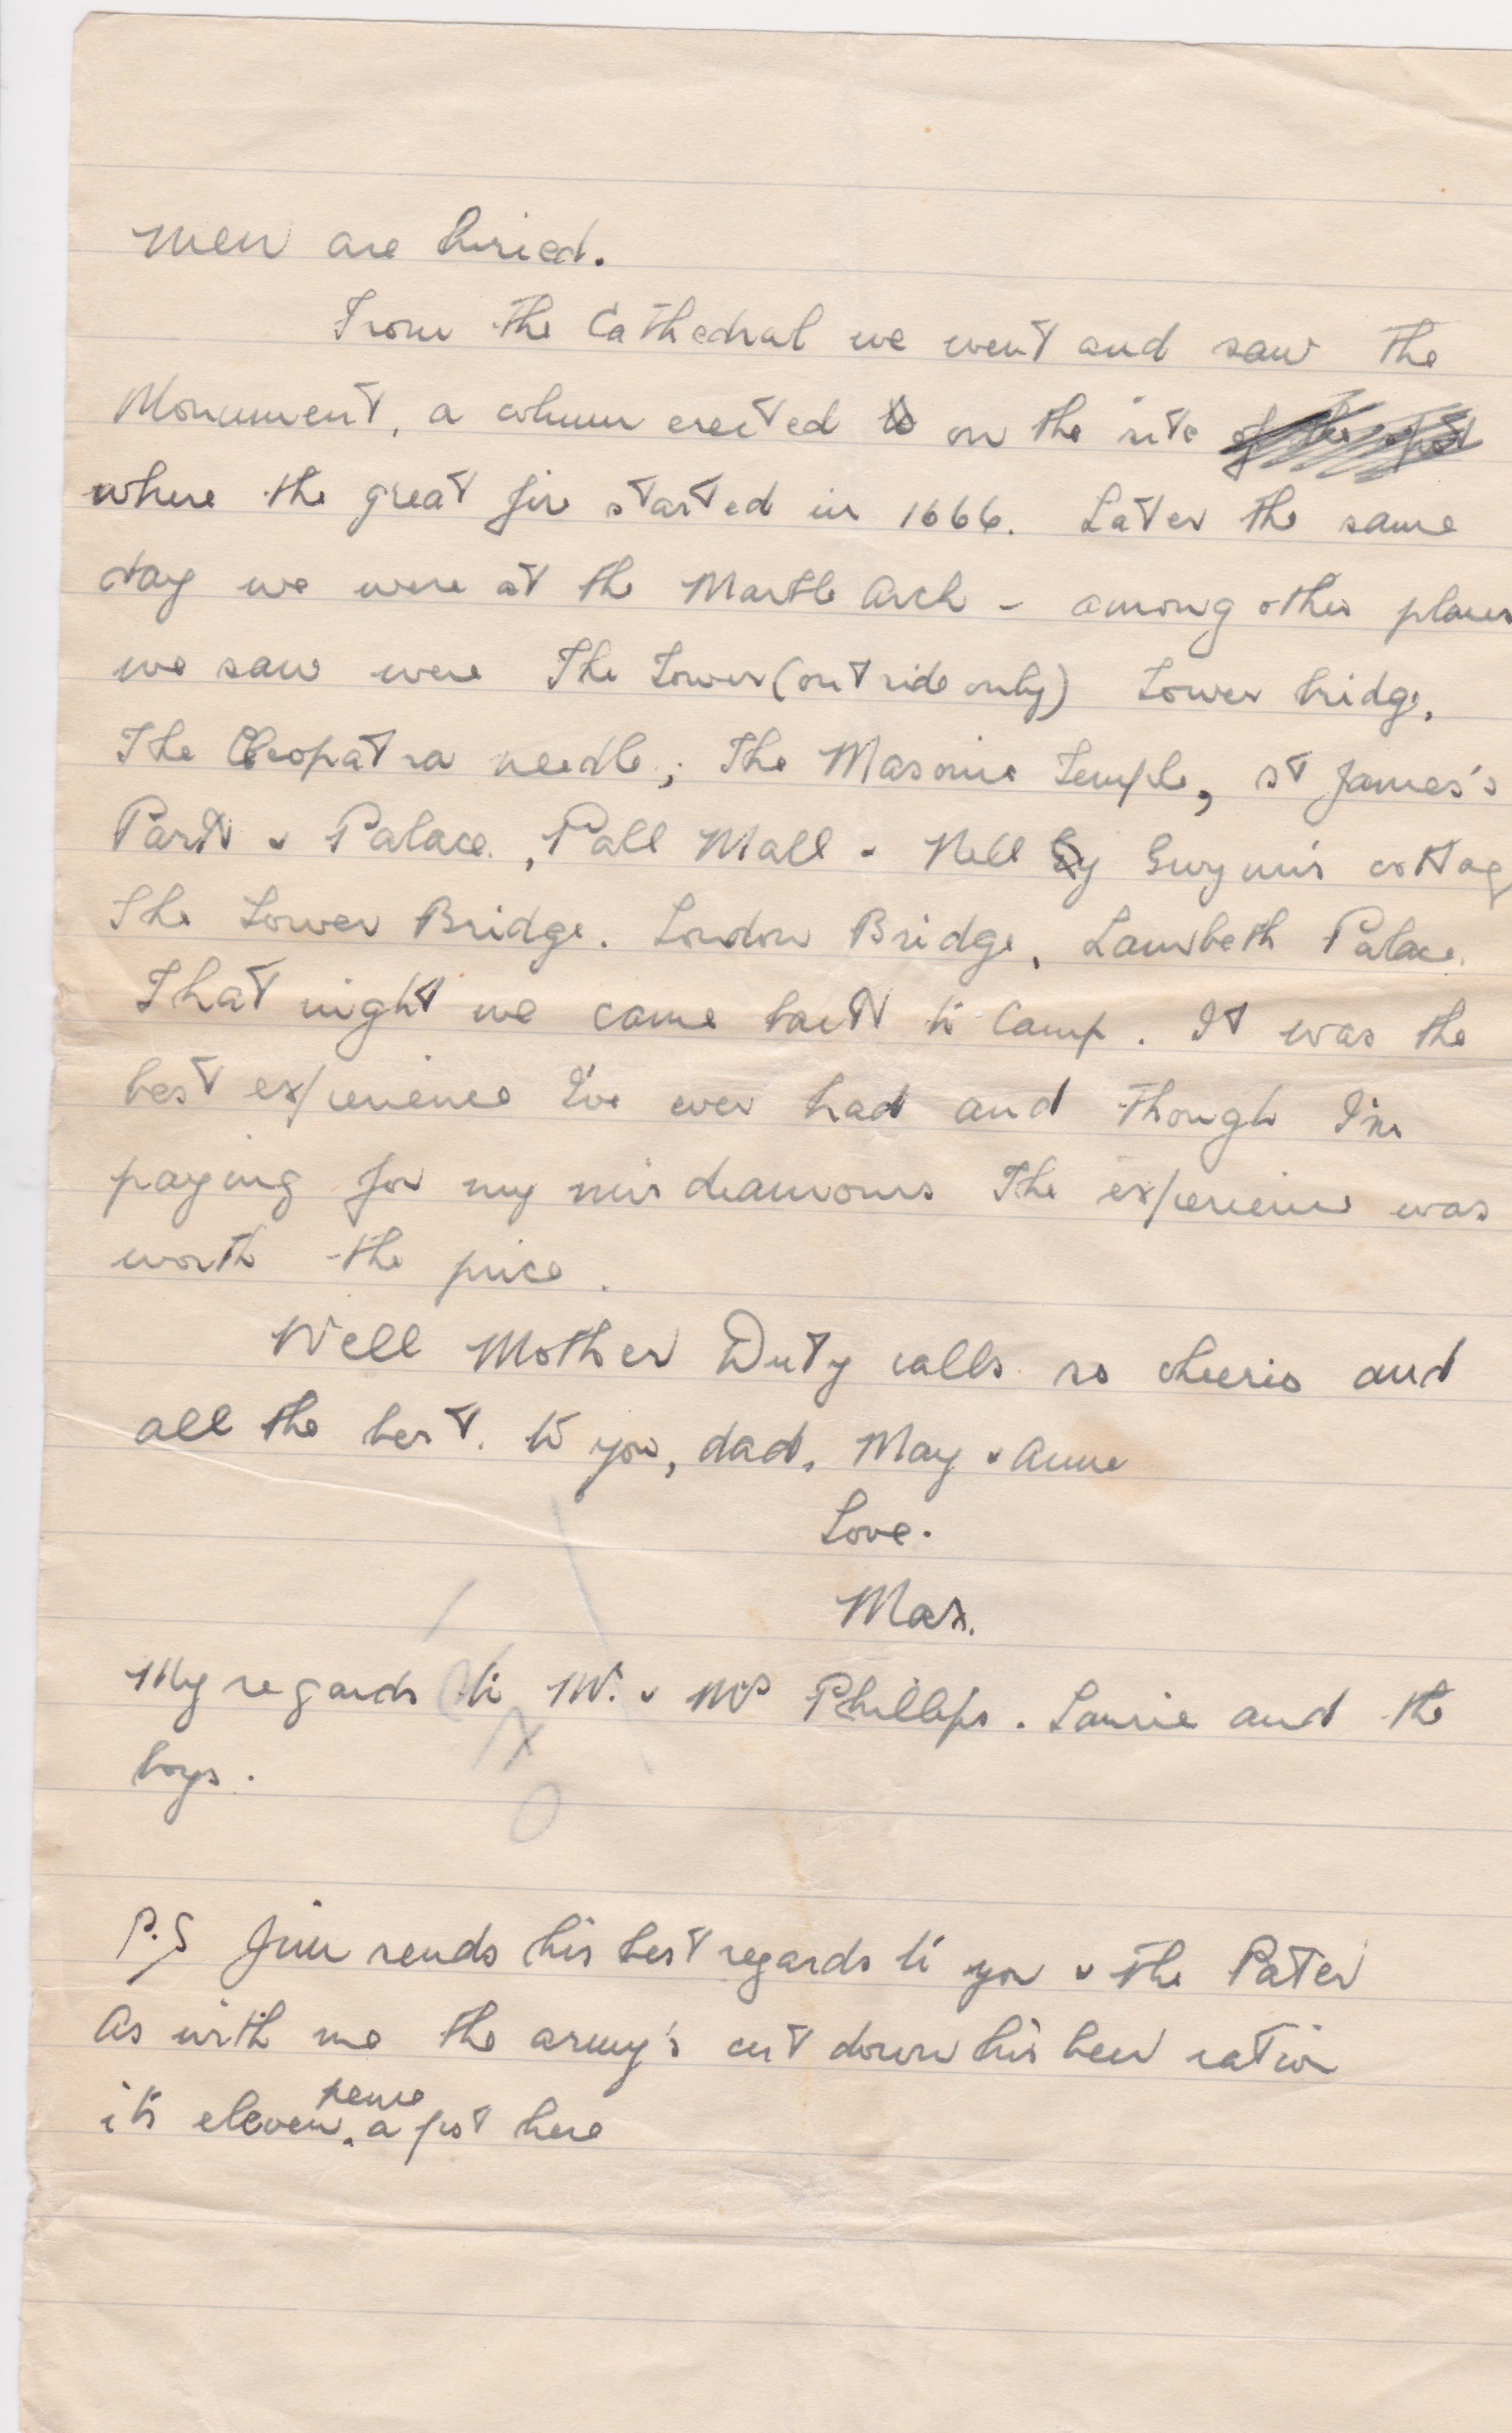 men are buried.
From the Cathedral we went and saw the
Monument, a column erected to on the site of the spot
where the great fire started in 1666. Later the same
day we were at the Marble Arch - among other places
we saw were The Tower (outside only) Tower bridge,
The Cleopatra needle, The Masonic Temple, St James's
Park & Palace, Pall Mall & Nell Gy Gwynn's cottag
The Tower Bridge. London Bridge, Lambeth Palace.
That night we came back to Camp. It was the
best experience I've ever had and though I'm
paying for my misdeamours The experience was
worth the price.
Well Mother Duty calls so cheerio and
all the best. to you, dad, May & Anne
Love.
Max.
My regards to Mr. & Mrs Phillips. Laurie and the
boys.
P.S Jim sends his best regards to you & the Pater
As with me the army's cut down his beer ration
its eleven pence a pot here